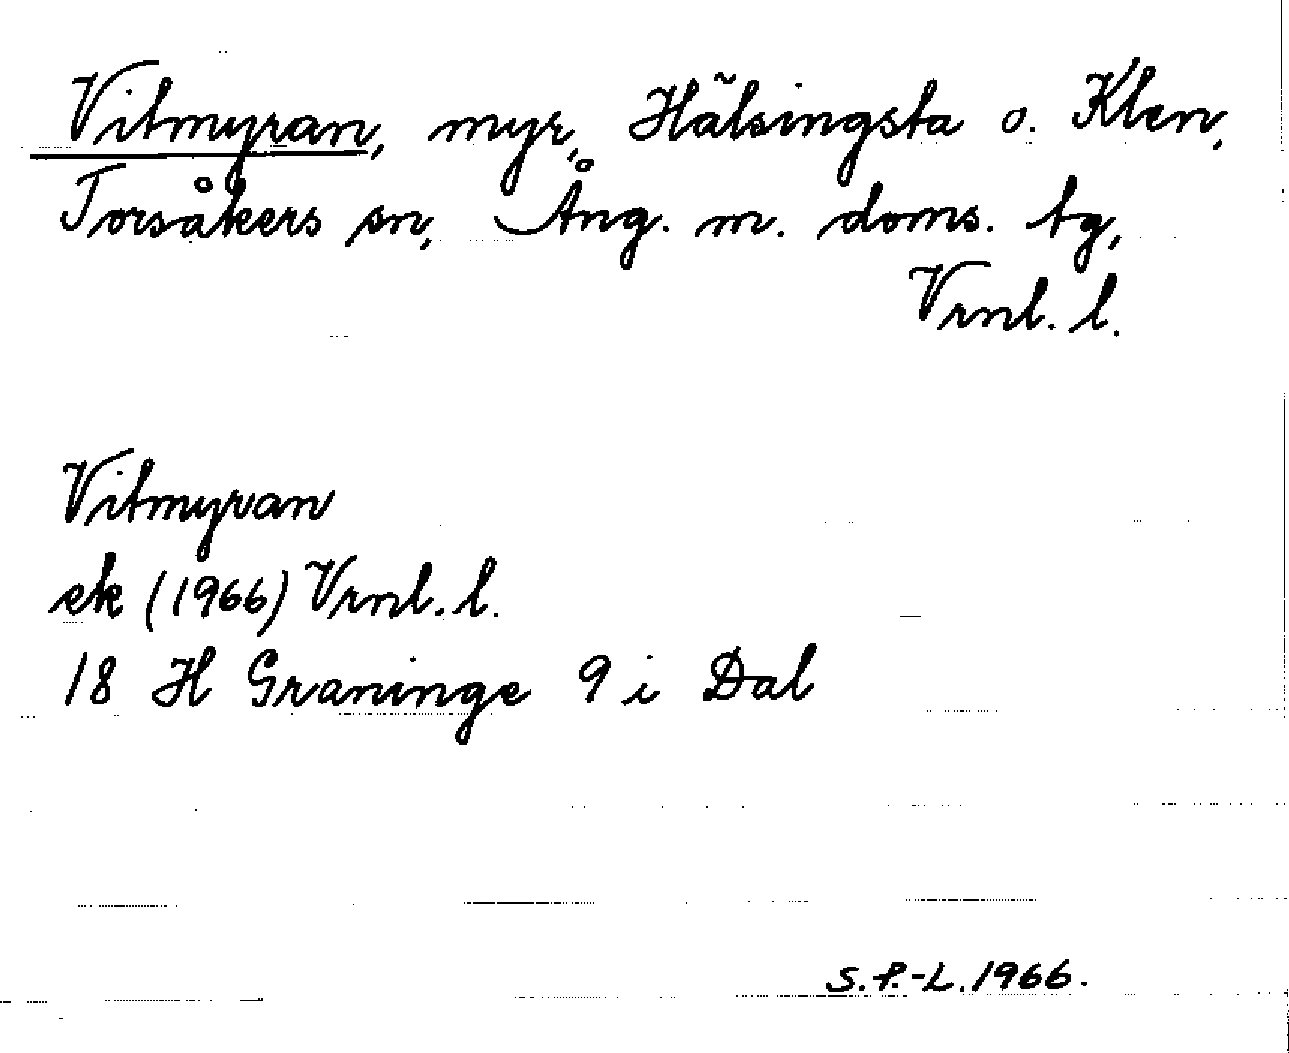 Vitmyran, myr, Hälsingsta o. Klen,
Torsåkers sn, Ång. m. doms. tg,
Vrnl. l.
Vitmyran
ek (1966) Vrnl. l.
18 H Graninge 9 i Dal
S.P.-L. 1966.